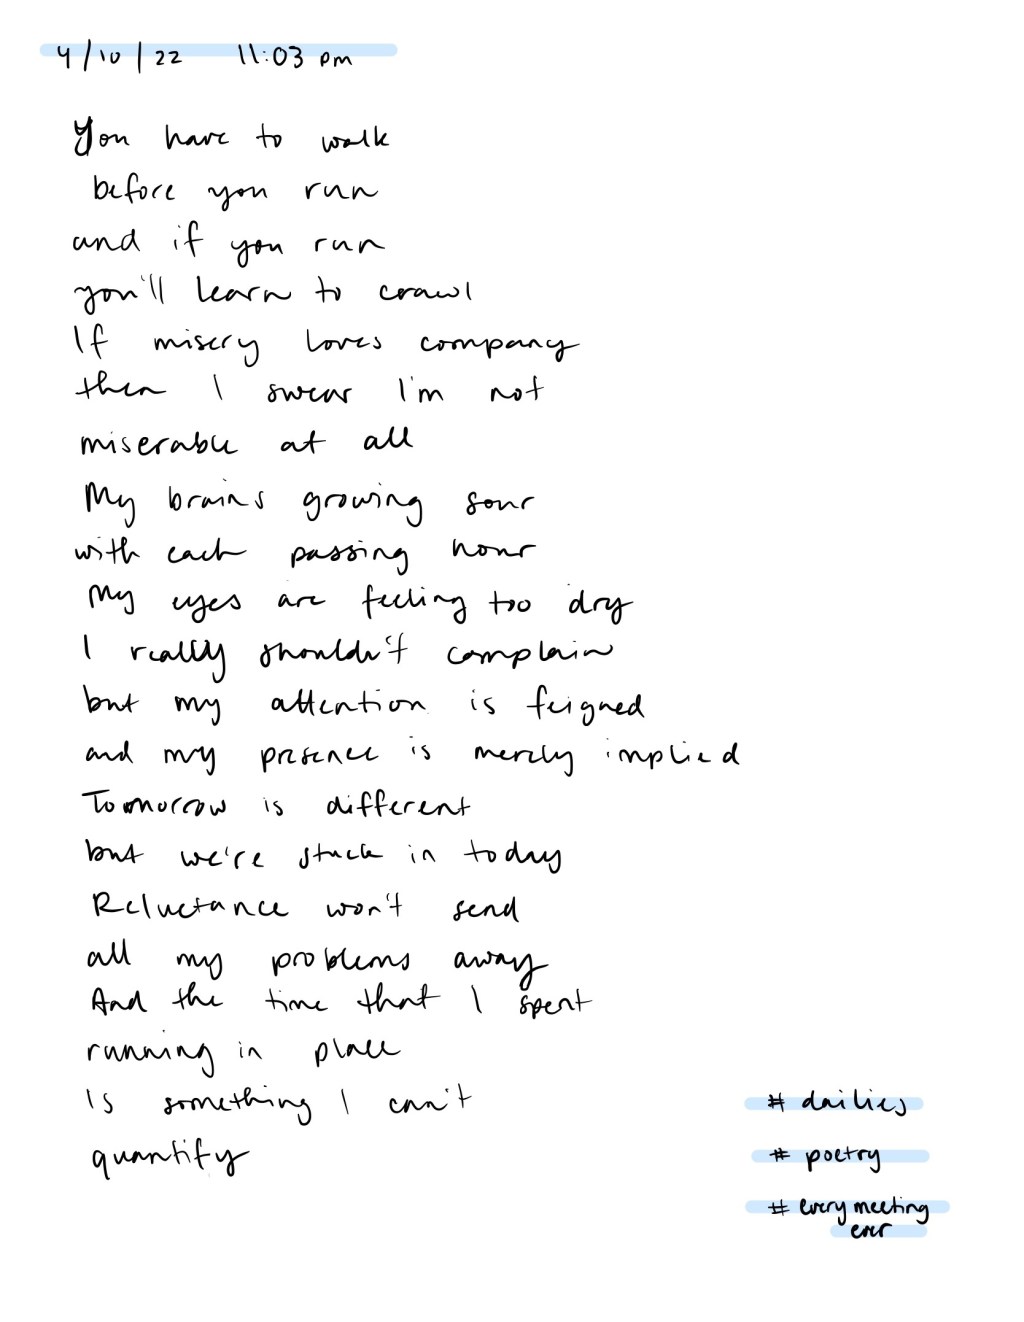 4/10/22 11:03 pm
You have to walk
before you run
and if you run
you'll learn to crawl
If misery loves company
then I swear I'm not
miserable at all
My brains growing sour
with each passing hour
My eyes are feeling too dry
I really shouldn't complain
but my attention is feigned
and my presence is merely implied
Tomorrow is different
but we're stuck in today
Reluctance won't send
all my problems away
And the time that I spent
running in place
Is something I can't
quantify
# dailies
# poetry
# every meeting
ever